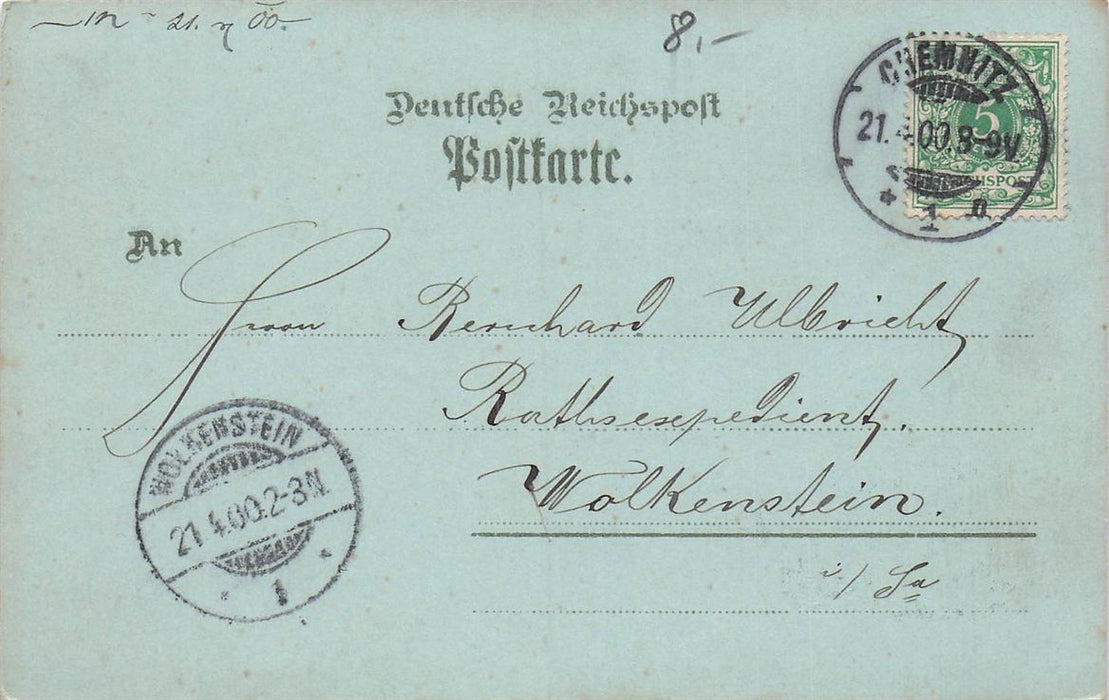 21. 4 00.
8.-
Deutsche Reichspost
Postkarte.
CHEMNITZ
21.4.00.8-9V.
* 1 n.
5
REICHSPOST
An
Herrn Bernhard Ulbricht,
Rathsexpedient,
Wolkenstein.
i/Sa
WOLKENSTEIN
21.4.00.2-3N.
* 1 *